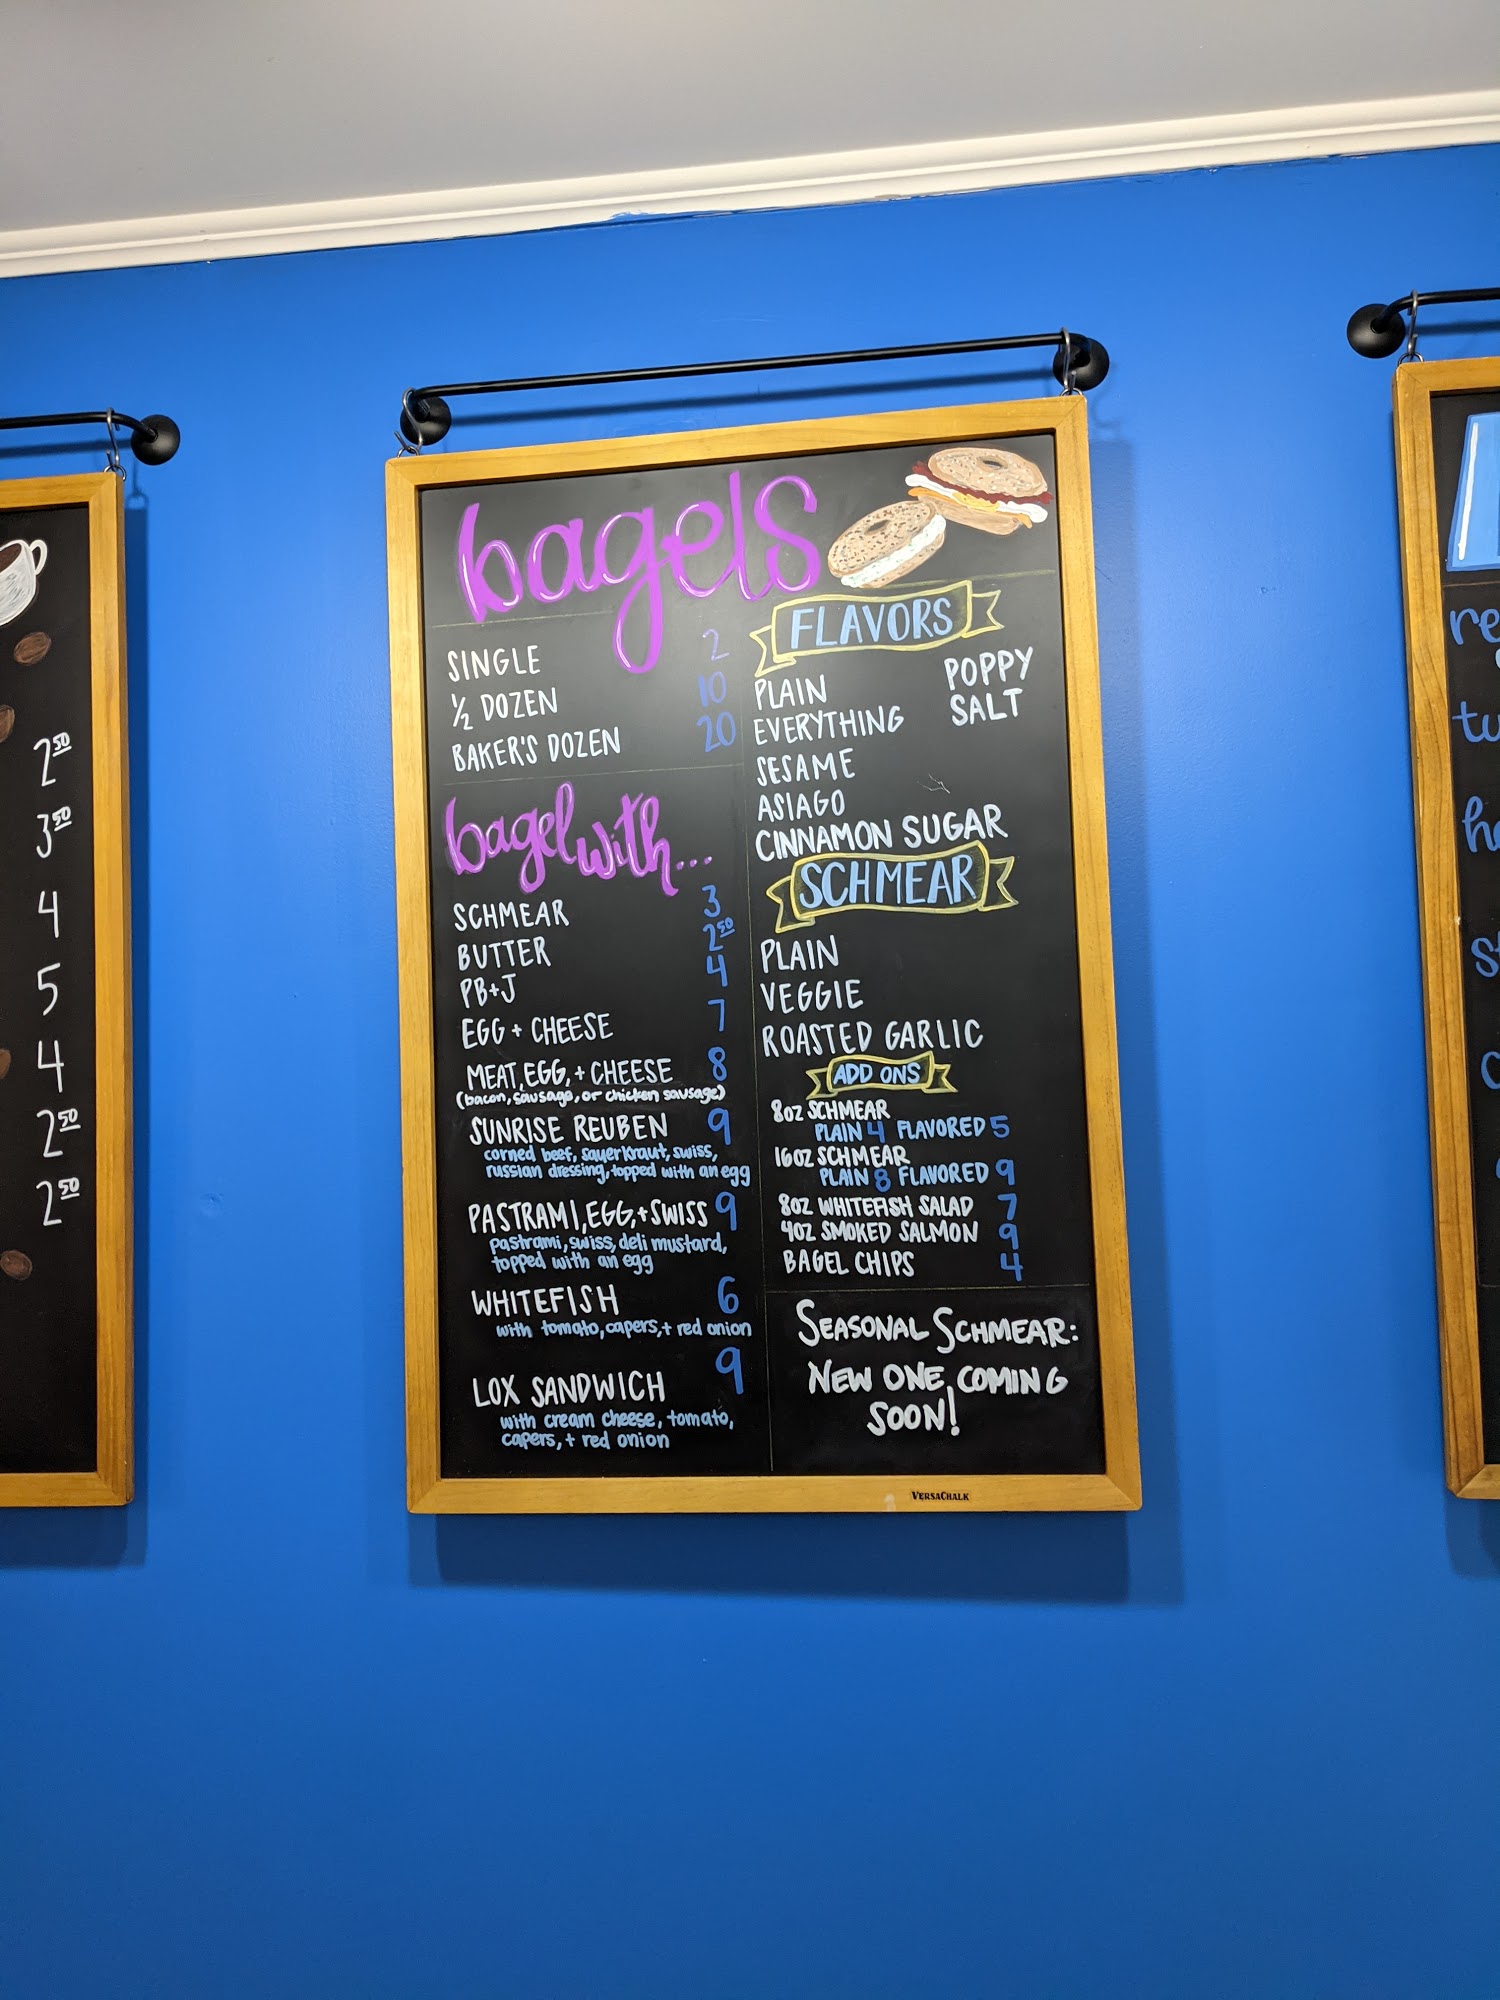 2⁵⁰
3⁵⁰
4
5
4
2⁵⁰
2⁵⁰
bagels
SINGLE 2
½ DOZEN 10
BAKER'S DOZEN 20
bagel with...
SCHMEAR 3
BUTTER 2⁵⁰
PB+J 4
EGG + CHEESE 7
MEAT, EGG, + CHEESE 8
(bacon, sausage, or chicken sausage)
SUNRISE REUBEN 9
corned beef, sauerkraut, swiss,
russian dressing, topped with an egg
PASTRAMI, EGG, + SWISS 9
pastrami, swiss, deli mustard,
topped with an egg
WHITEFISH 6
with tomato, capers, + red onion
LOX SANDWICH 9
with cream cheese, tomato,
capers, + red onion
FLAVORS
PLAIN
EVERYTHING
SESAME
ASIAGO
CINNAMON SUGAR
POPPY
SALT
SCHMEAR
PLAIN
VEGGIE
ROASTED GARLIC
ADD ONS
8OZ SCHMEAR
PLAIN 4 FLAVORED 5
16OZ SCHMEAR
PLAIN 8 FLAVORED 9
8OZ WHITEFISH SALAD 7
4OZ SMOKED SALMON 9
BAGEL CHIPS 4
SEASONAL SCHMEAR:
NEW ONE COMING
SOON!
VERSACHALK